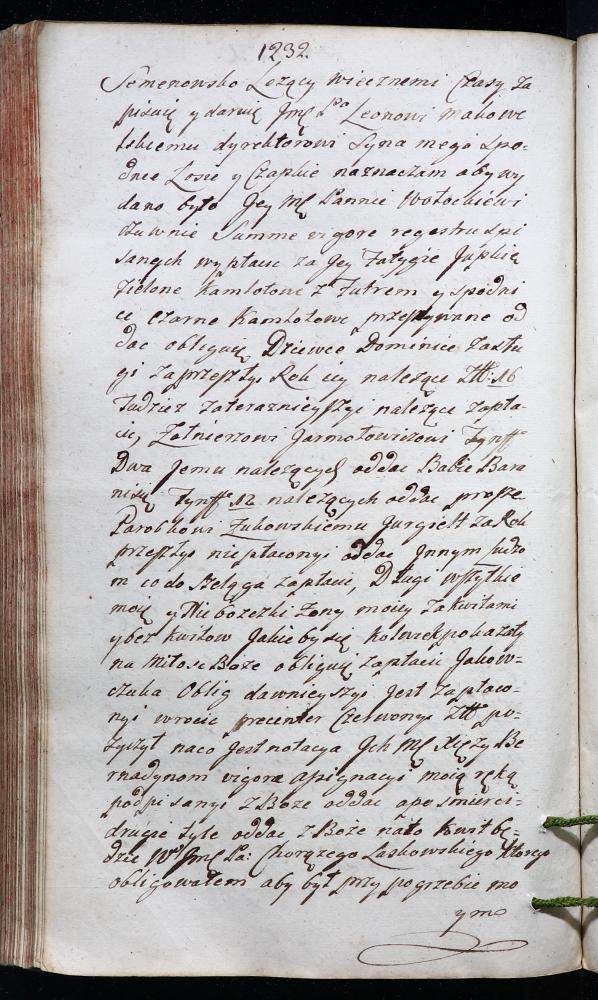 1232.
Semenowsko Lezący wiecznemi Czasy Za
pisuię y daruię Jmć Pa Leonowi Makowe
tskiemu dyrektorowi Syna mego Spo-
dnie Łosie y Czapkie naznaczam aby wy
dano było Jey Mć Pannie Wołockiewi
czuwnie Summe vigore regestru Spi
sanych wypłacic za Jey Fatygie Jupkię
Zielone Kamlotowe z Futrem y spodni
ce czarne Kamlotowe przeszywane od
dac obliguię Dziewce Dominice zasłu
gi za przeszły Rok iey należące Złł: 16
Tudziez zateraznieyszyi należące zapła-
cic, Zołnierzowi Jarmołowiczowi Tynff
Dwa Jemu należących oddac Babie Bara
nisię Tynff 12 należących oddac prosze
Parobkowi Zukowskiemu Jurgielt za Rok
przeszły niepłaconyi oddac Jnnym ludzo
m co do szeląga zapłacic, Długi wszytkie
moie y Nieboszczki żony moiey za kwitami
y bez kwitow Jakie by się kolwiek pokazały
na Miłosc Boże obliguię zapłacic Jakow-
czuka Oblig dawnieyszyi Jest zapłaco-
nyi wrocic precenter Czerwony Złł po-
życzył naco Jest notacya Jch Mć Xięży Be
rnadynom vigore assignacyi moią ręką
podpisanyi Zboże oddac a po smierci
drugie tyle oddac Zboże nato kwit bę-
dzie W Jmć Pa: Chorążego Laskowskiego ktorego
obligowałem aby był przy pogrzebie mo
ym